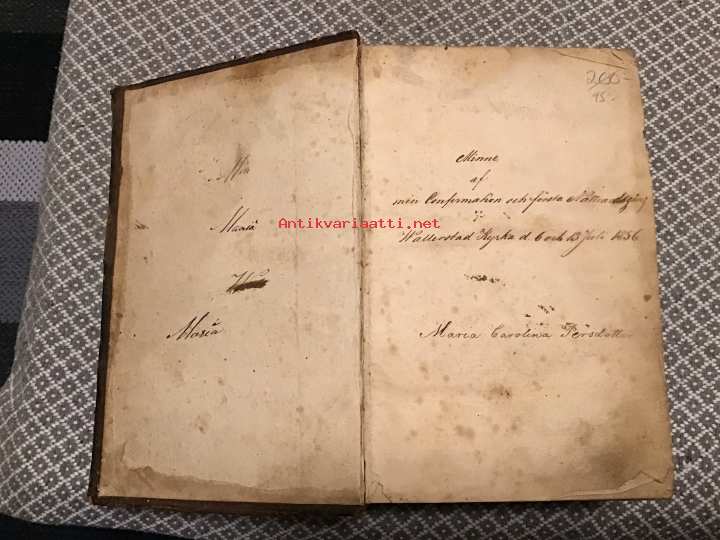 Maria
Maria
Antikvariaatti.net
Minne
af
min Confirmation och första Nattvardsgång
i
Wallerstad Kyrka d. 6 och 13 Juli 1856
Maria Carolina Persdotter